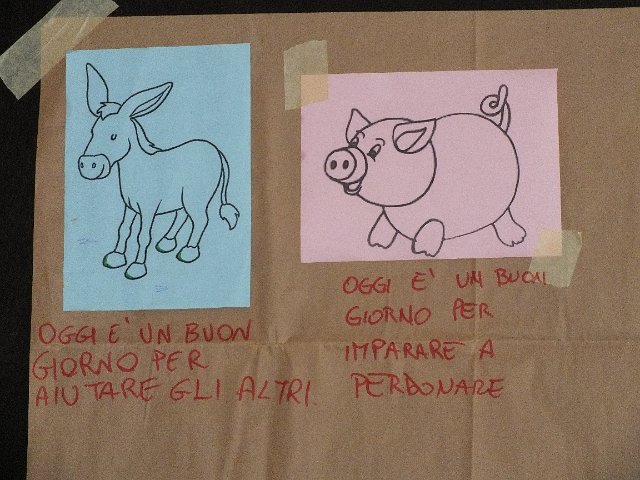 OGGI E' UN BUON
GIORNO PER
AIUTARE GLI ALTRI.
OGGI E' UN BUON
GIORNO PER
IMPARARE A
PERDONARE